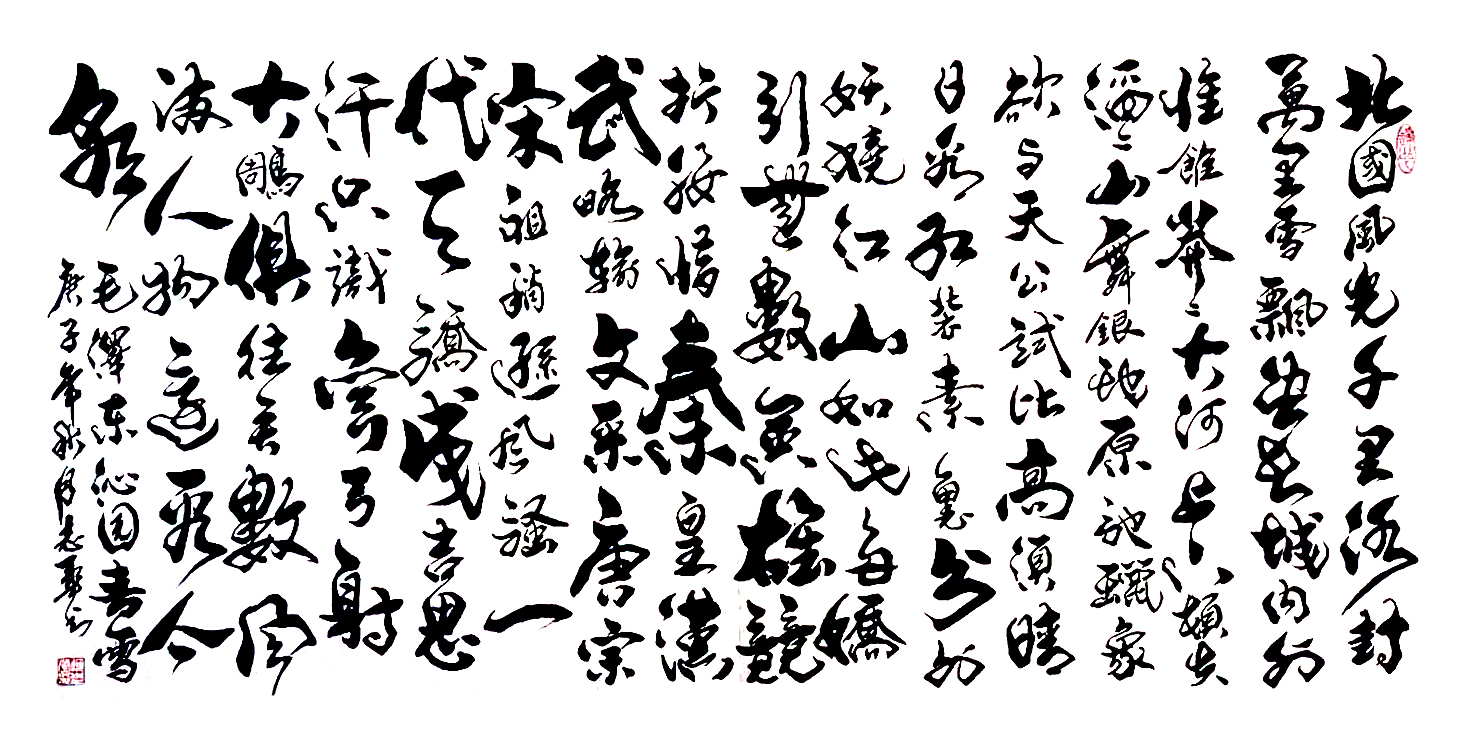 北國風光千里冰封
萬里雪飄望長城內外
惟餘莽〻大河上下頓失
滔〻山舞銀蛇原馳蠟象
欲与天公試比高須晴
日看紅裝素裹分外
妖嬈江山如此多嬌
引無數英雄競
折腰惜秦皇漢
武略輸文采唐宗
宋祖稍遜風騷一
代天驕成吉思
汗只識彎弓射
大鵰俱往矣數風
流人物還看今
朝
毛澤東沁園春雪
庚子年秋月